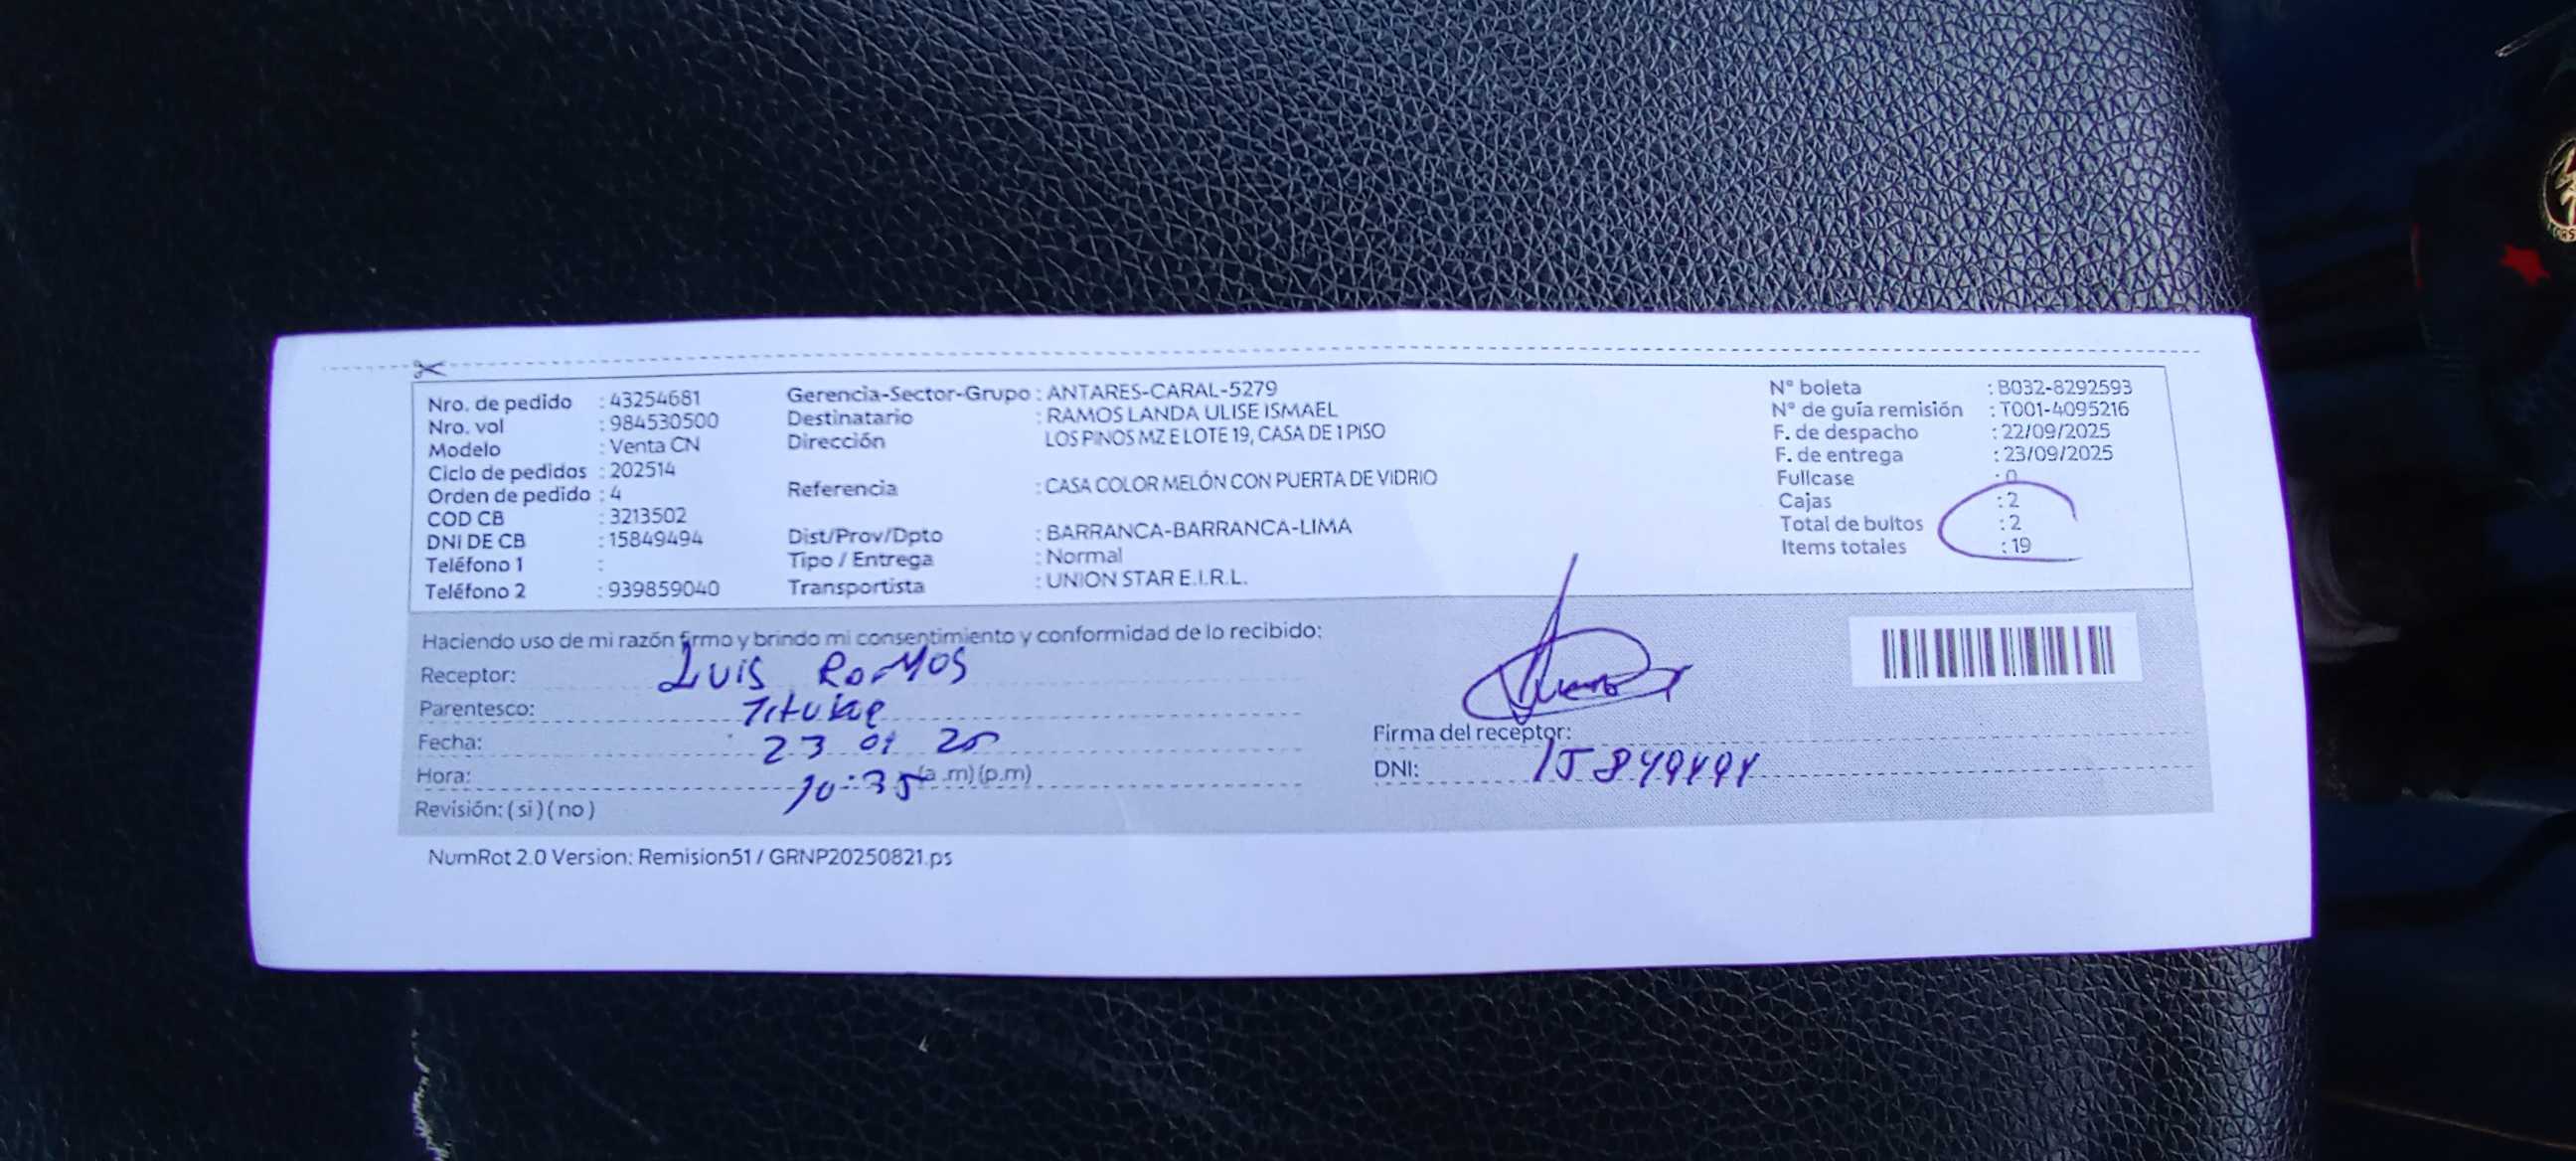 Nro. de pedido : 43254681
Nro. vol : 984530500
Modelo : Venta CN
Ciclo de pedidos : 202514
Orden de pedido : 4
COD CB : 3213502
DNI DE CB : 15849494
Teléfono 1 :
Teléfono 2 : 939859040
Gerencia-Sector-Grupo : ANTARES-CARAL-5279
Destinatario : RAMOS LANDA ULISE ISMAEL
Dirección LOS PINOS MZ E LOTE 19, CASA DE 1 PISO
Referencia : CASA COLOR MELÓN CON PUERTA DE VIDRIO
Dist/Prov/Dpto : BARRANCA-BARRANCA-LIMA
Tipo / Entrega : Normal
Transportista : UNION STAR E.I.R.L.
N° boleta : B032-8292593
N° de guía remisión : T001-4095216
F. de despacho : 22/09/2025
F. de entrega : 23/09/2025
Fullcase : 0
Cajas : 2
Total de bultos : 2
Items totales : 19
Haciendo uso de mi razón firmo y brindo mi consentimiento y conformidad de lo recibido:
Receptor: Luis Ramos
Parentesco: Titular
Fecha: 23 09 25
Hora: 10:35 (a .m) (p.m)
Revisión: ( si ) ( no )
Firma del receptor:
DNI: 15849494
NumRot 2.0 Version: Remision51 / GRNP20250821.ps